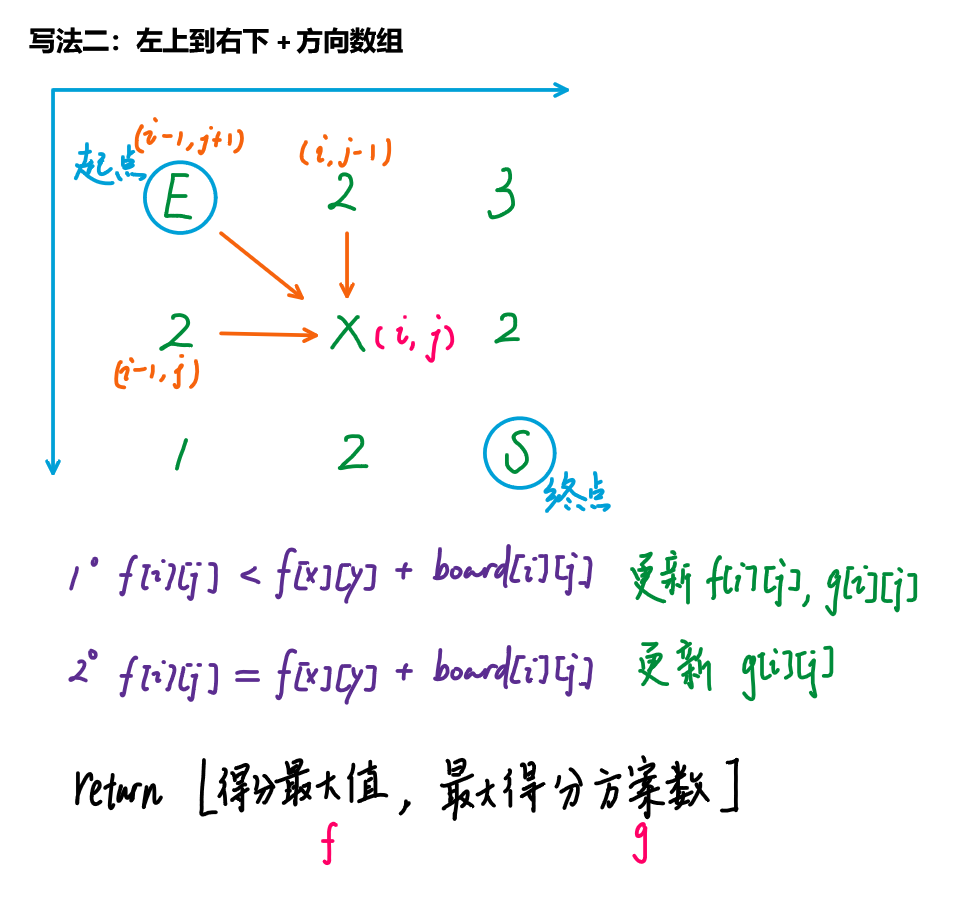 写法二：左上到右下 + 方向数组
(i-1,j+1) (i,j-1)
起点 E 2 3
2 X (i,j) 2
(i-1,j)
1 2 S
终点
1° f[i][j] < f[x][y] + board[i][j] 更新 f[i][j], g[i][j]
2° f[i][j] = f[x][y] + board[i][j] 更新 g[i][j]
return [得分最大值, 最大得分方案数]
f g